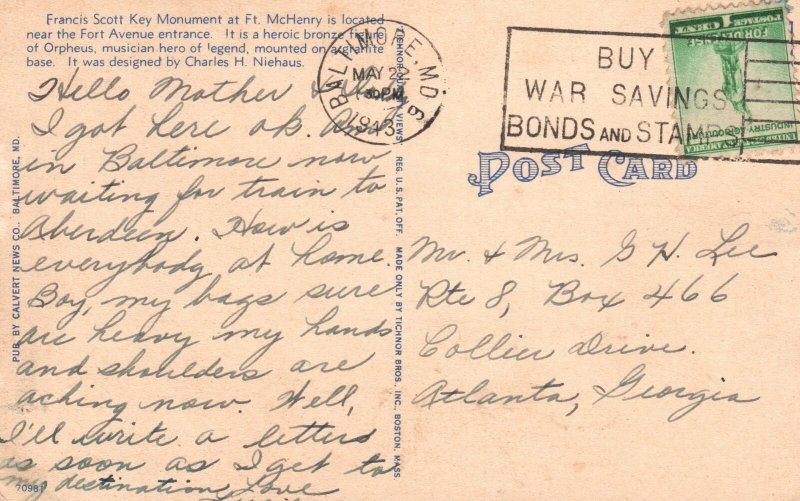 Francis Scott Key Monument at Ft. McHenry is located
near the Fort Avenue entrance. It is a heroic bronze figure
of Orpheus, musician hero of legend, mounted on a granite
base. It was designed by Charles H. Niehaus.
Hello Mother &
I got here ok. Am
in Baltimore now
waiting for train to
Aberdeen. How is
everybody at home.
Boy, my bags sure
are heavy my hands
and shoulders are
aching now. Well,
I'll write a letters
as soon as I get to
my dectination, Love
70981
PUB. BY CALVERT NEWS CO., BALTIMORE, MD.
TICHNOR QUALITY VIEWS, REG. U.S. PAT. OFF. MADE ONLY BY TICHNOR BROS. INC., BOSTON, MASS
BALTIMORE, MD.
MAY 22
30 PM
1943
BUY
WAR SAVINGS
BONDS AND STAMPS
POSTAGE 1 CENT
FOR DEFENSE
INDUSTRY AGRICULTURE
UNITED STATES OF AMERICA
POST CARD
Mr. & Mrs. G H. Lee
Rte 8, Box 466
Collier Drive.
Atlanta, Georgia